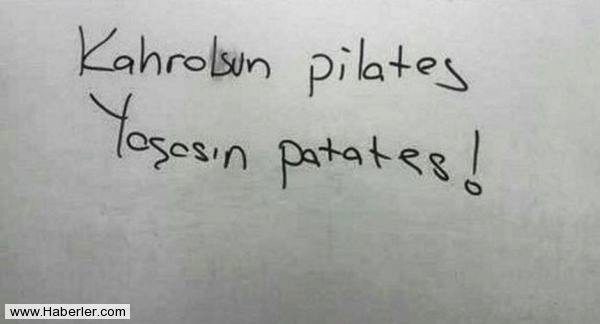 Kahrolsun pilates
Yaşasın patates!
www.Haberler.com